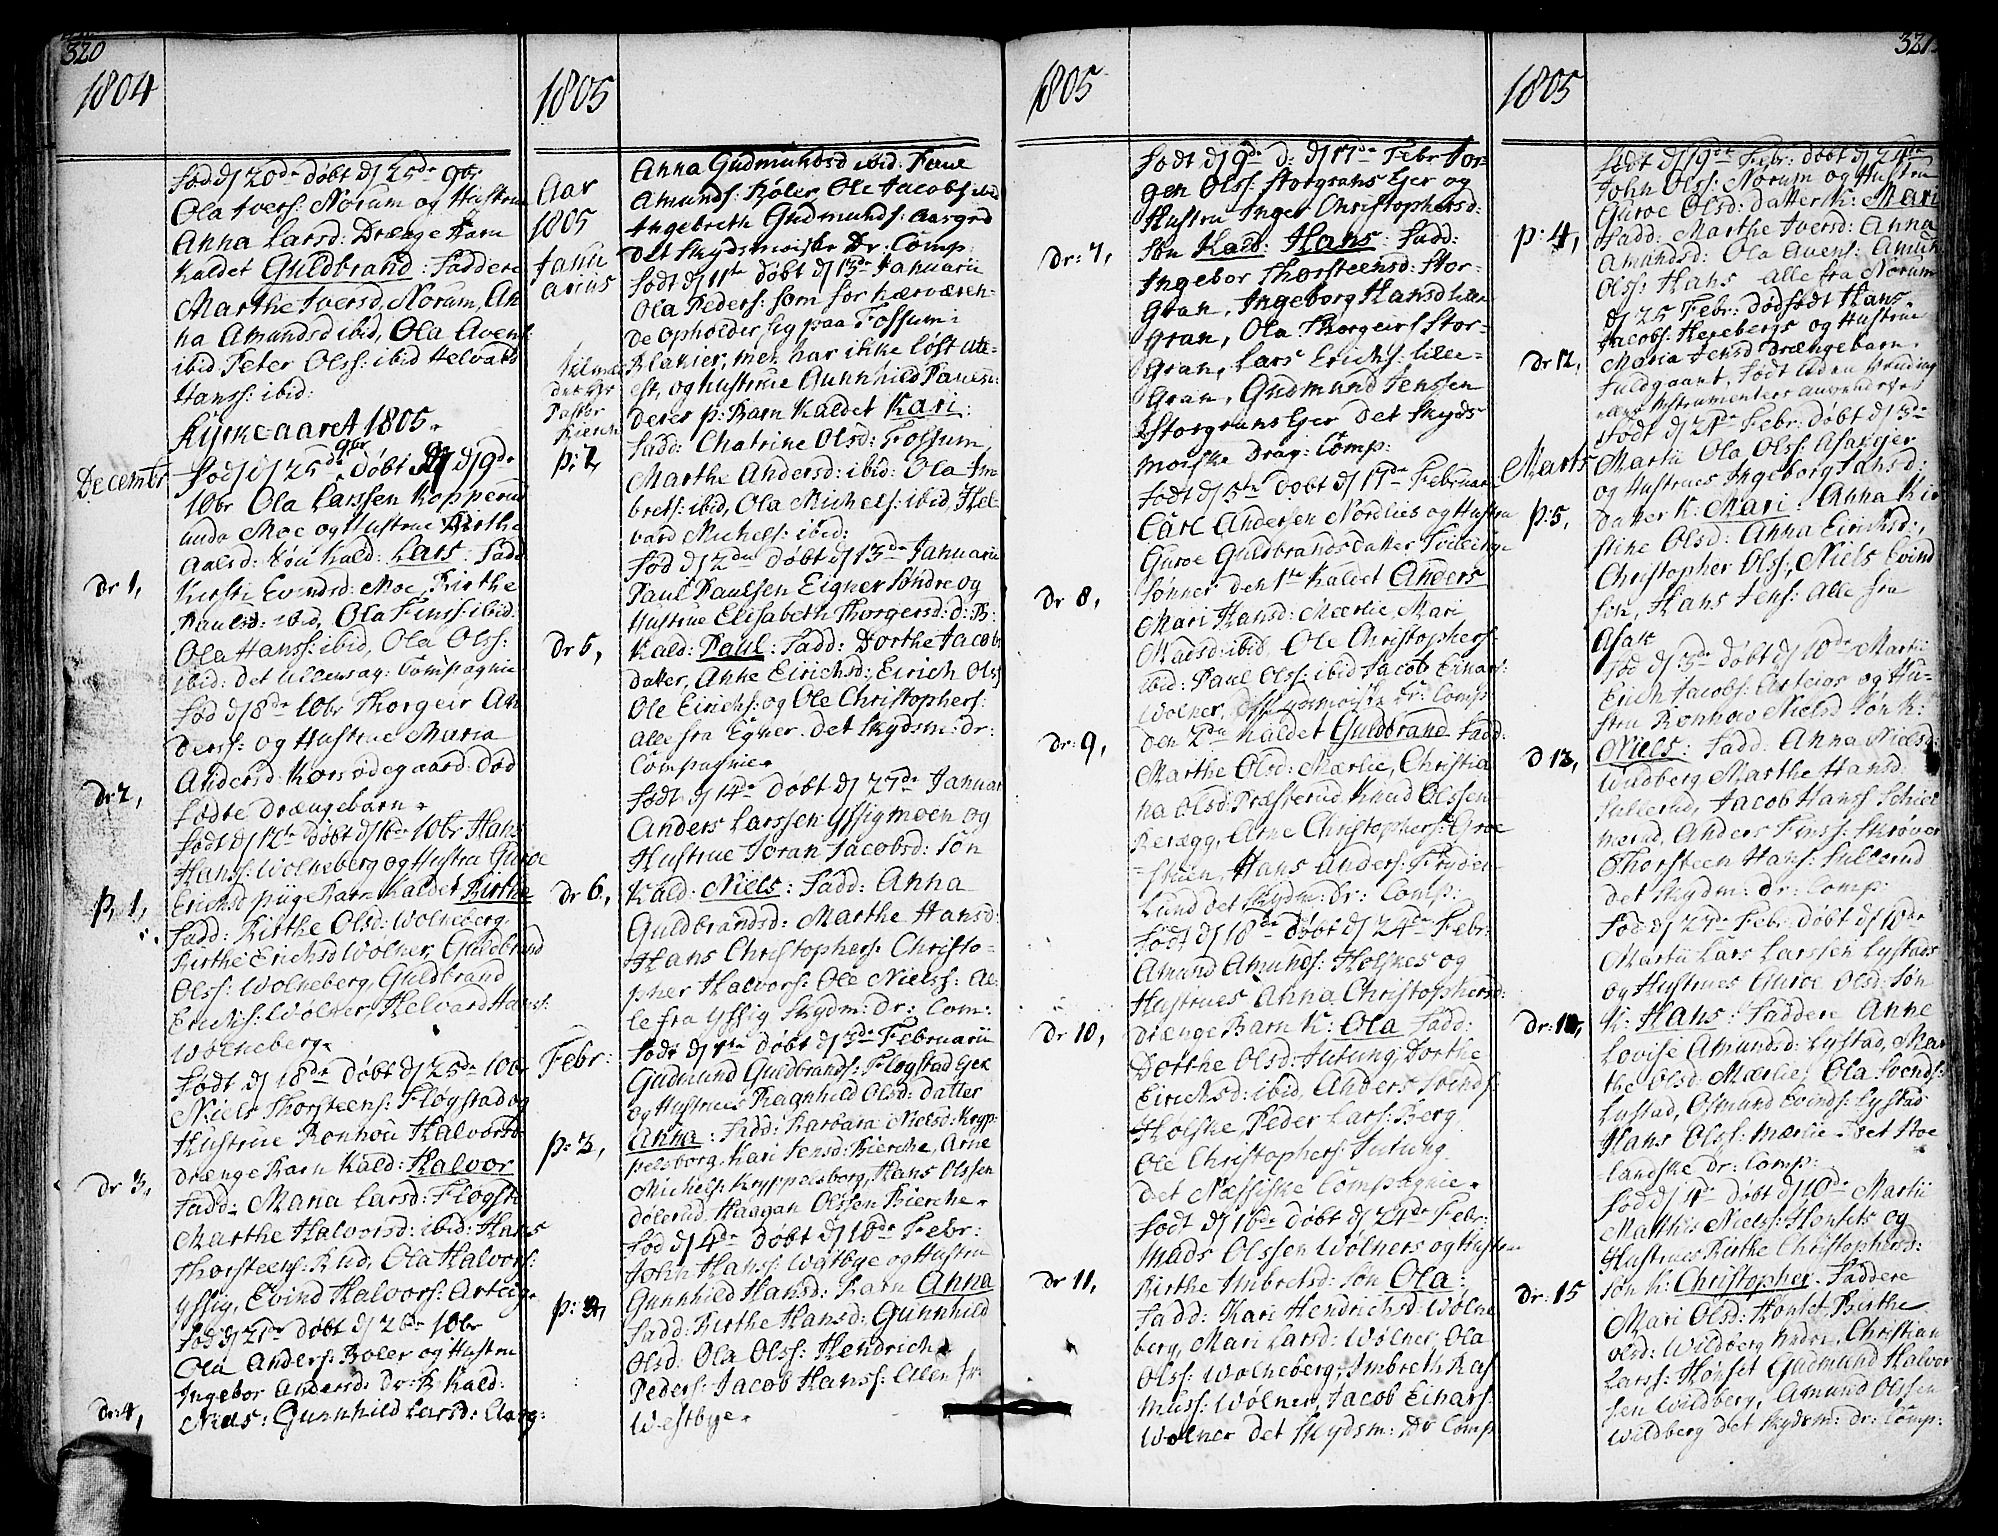 320
1804
Fød d 20de døbt d 25de 9br
Ola Ivers: Norum og Hustrue
Anna Larsd: Drænge Barn
kaldet Guldbrand: Faddere
Marthe Iversd, Norum, An
na Amundsd ibid, Ola Avens
ibid Peter Olss: ibid Helvard
Hanss: ibid:
Kyrkeaaret 1805.
Decembr
Fød d 25de 9br Døbt d 9de
10br Ola Larssen Kopperud
unde Moe og Hustrue Birthe
Kald: Lars: Fadd
Dr 1,
Kirsti Evindsd: Moe, Birthe
Paulsd: ibid, Ola Finss: ibid:
Ola Hanss: ibid, Ola Olss:
ibid: det Ullensag: Compagnie
Fød d 8de 10br Thorgeir An
derss: og Hustrue Maria
Dr 2,
Andersd: Korsødegaard: død
fødte drængebarn.
Født d 12te døbt d 16de 10br Hans
Hanss: Wolneberg og Hustrue Guroe
P: 1,
Erichsd piige Barn kaldet Birthe
Fadd: Birthe Olsd: Wolneberg
Birthe Erichsd Wolner, Guldbrand
Olss: Wolneberg, Guldbrand
Erichs: Wolner, Helvard Hans:
Wolneberg.
Født d 18de døbt d 25de 10br
Niels Thorsteens: Flogstad og
Hustrue Ronhou Halvorsd
Dr 3,
drænge Barn kald: Halvor
Fadd: Maria Larsd: Flogst:
Marthe Halvorsd: ibid: Hans
Thorsteens: Rud, Ola Halvors:
Yssig, Evind Halvors: Arteig
Fød d 21de døbt d 26de 10br
Ola Anders: Boler og Hustrue
Ingebor Andersd: Dr: B: kald:
Dr: 4,
Niels: Gunnhild Larsd: Aasg:
1805
Aar
1805
Janu
arius
Anna Gudmundsd ibid: Farue
Amunds: Bøler, Ole Jacobs: ibid
Ingebreth Gudmunds: Aasgrd
det Skydsmoiske Dr: Comp:
Født d 11te døbt d 13de Januarii
Ola Peders: som for nærværen-
de opholder sig paa Fossum i
Blakier, men har ikke løst Atte-
est, og Hustrue Gunnhild Paulsd:
deres p: Barn kaldet Kari:
P: 2,
Fadd: Chatrine Olsd: Fossum
Marthe Andersd: ibid: Ola Im
brets: ibid, Ola Michels: ibid, Hel
vard Michels: ibid:
Fød d 2den døbt d 13de Januarii
Paul Paulsen Eigner Søndre og
Hustrue Elisabeth Thorgersd: d: B:
Dr 5,
kald: Paul: Fadd: Dorthe Jacobs
datter, Anne Eirichsd: Eirich Olss
Ole Eirichs: og Ole Christophers:
Alle fra Egner. det Skydsm: dr:
Compagnie.
Født d 14de døbt d 27de Januar
Anders Larssen Yssigmoen og
Hustrue Joran Jacobsd: Søn
Dr 6,
kald: Niels: Fadd: Anna
Guldbrandsd: Marthe Hansd:
Hans Christophers: Christo-
pher Halvors: Ole Nielss: Al-
le fra Yssig Skydm: Dr: Com:
Febr:
Født d 1ste døbt d 3de Februarii
Gudmund Guldbrands: Flogstad Eier
og Hustrues Ragnhild Olsd: datter
P: 3,
Anna: Fadd: Barbara Nielsd: Kryp
pelsborg, Kari Jensd: Bierche, Arne
Michels: Kryppelsborg, Hans Olssen
Dølerud, Haagan Olssen Bierche.
Fød d 4de døbt d 10de Febr:
John Hanss: Wæstbye og Hustrue
Gunnhild Hansd: Barn Anna
Fadd: Birthe Hansd: Gunnhild
Olsd: Ola Olss: Hendrich
Peders: Jacob Hanss: Allen fr:
Westbye.
1805
Født d 9de d: d 17de Febr Jor-
gen Olss: Storgrans Eier og
Hustru Inger Christophersd:
Dr: 7,
Søn Kald: Hans: Fadd:
Ingebor Thorsteensd: Stor-
gran, Ingeborg Hansd Lille
gran, Ola Thorgeirs Stor-
gran, Lars Erichs: Lille-
gran, Gudmund Jenssen
Storgrans Eier det Skyds
moiske Drag: Comp:
Født d 5te døbt d 17de Februar
Carl Andersen Nordlies og Hustru
Guroe Guldbrands datter Tvillinge
Dr 8,
Sønner den 1ste kaldet Anders
Mari Hansd: Mærlie, Mari
Madsd: ibid, Ole Christophers:
ibid: Paul Olss: ibid Jacob Einars:
Wolner, det Skydsmoiske Dr: Comp
Dr: 9,
den 2den kaldet Guldbrand Fadd:
Marthe Olsd: Mærlie, Christia
na Olsd: Præsterud, Knud Olssen
Beregg, Arne Christophers: Groe
Hans Anders: Fryden
Lund det Skydm: dr: Comp:
Født d 18de døbt d 24de Febr:
Amund Amunds: Holsnes og
Hustrues Anna Christophersd:
Dr 10,
Drænge Barn K: Ola Fadd:
Dorthe Olsd: Jutung, Dorthe
Eirichsd: ibid, Anders Svends:
Holske, Peder Lars: Berg
Ole Christophers: Jutung.
Det Næssiske Compagnie.
Født d 16de døbt d 24de Febr:
Mads Olssen Wolners og Hustru
Dr 11,
Birthe Imbretsd: Søn Ola:
Fadd: Kari Hendrichsd: Wolne
berg, Mari Larsd: Wolner, Ola
Olss: Wolneberg, Imbreth Ras
muss: Wolner, Jacob Einars:
Wolner det Skydsm: Dr Comp
321
1805
Født d 19de Febr: døbt d 24de
John Olss: Norum og Hustrue
Guroe Olsd: datter K: Mari
P: 4,
Fadd: Marthe Iversd: Anna
Amundsd: Ola Avens: Amun
Olss: Hans alle fra Norum
d 25 Febr: dødfødt Hans
Jacobs: Hexebergs og Hustrue
Dr 12,
Maria Jensd drængebarn.
Fuldgaaet, født uden
Instrumenters anvendelse
Marts
Født d 21de Febr: døbt d 3de
Martii Ola Olss: Asakejer
og Hustrues Ingeborg Jansd:
P: 5,
datter K: Mari: Anna Kir
stine Olsd: Anna Eirichsd:
Christopher Olss:, Niels Evind
sen, Hans Jens: alle fra
Asak
Fød d 3de døbt d 10de Martii
Erich Jacobs: Arteios og Hu-
stru Ronhow Nielsd Søn K:
D 13,
Niels: Fadd: Anna Nielsd:
Wildberg, Marthe Hansd:
Fullerud, Jacob Hanss Schier
merud, Anders Finss: Skrøver
Thorsteen Hans: Fullerud
det Skydm: dr: Comp:
Fød d 27de Febr: døbt d 10de
Martii Lars Larssen Lystads
og Hustrues Guroe Olsd: Søn
Dr: 14,
K: Hans: Faddere Anne
Lovise Amundsd: Lystad, Mar
the Olsd: Mærlie, Ola Svends:
Lystad, Osmund Evinds: Lystad
Hans Olss: Mærlie det Hoe
landske dr: Comp:
Fød d 4de døbt d 10de Martii
Matthis Niels: Hontets og
Hustrues Birthe Christophersd:
Dr: 15
Søn K: Christopher Faddere
Mari Olsd: Hontet, Birthe
Olsd: Wildberg, Christian
Larss: Hønset, Gudmund Halvor
sen Wildberg, Amund Olssen
Wildberg det Skydsm: dr: Comp: